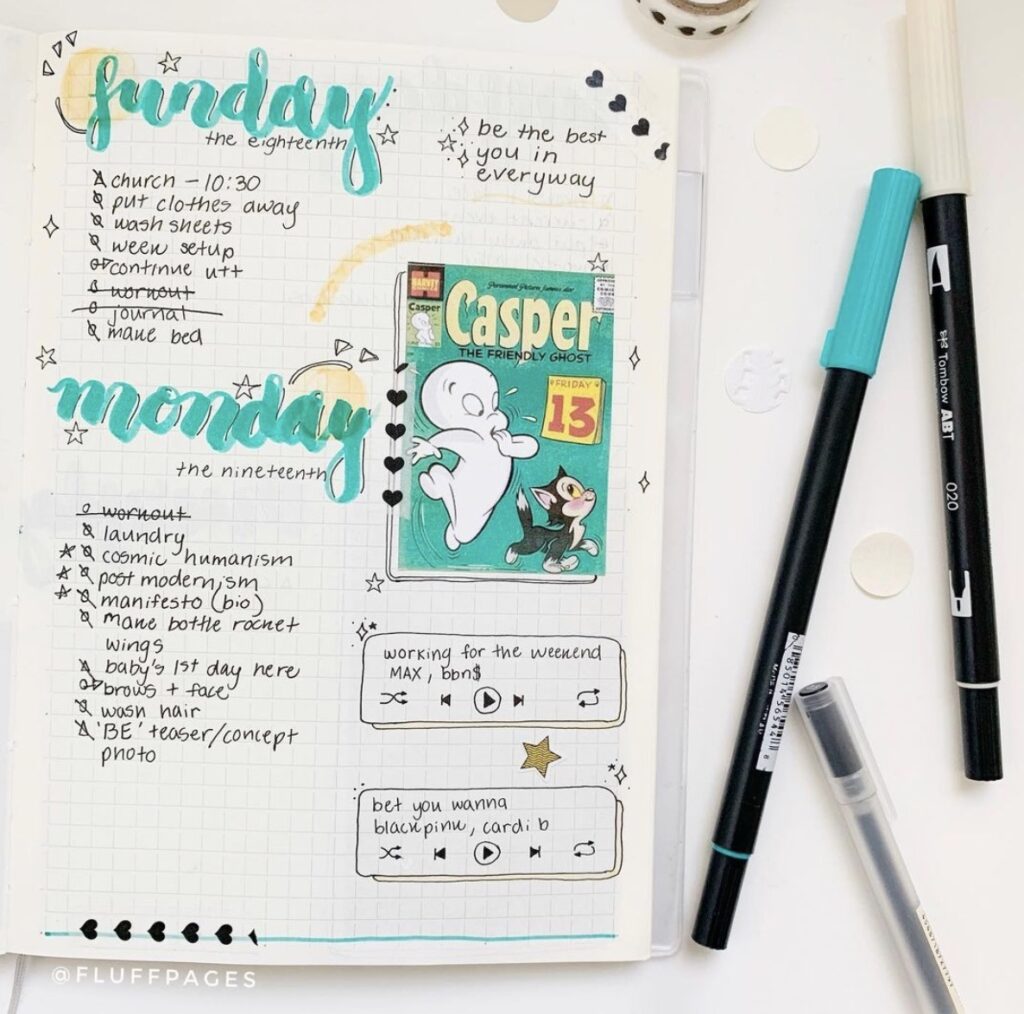 sunday
the eighteenth
church - 10:30
put clothes away
wash sheets
week setup
continue utt
workout
journal
make bed
be the best
you in
everyway
HARVEY
Casper
Casper
THE FRIENDLY GHOST
FRIDAY
13
monday
the nineteenth
workout
laundry
cosmic humanism
post modernism
manifesto (bio)
make bottle rocket
wings
baby's 1st day here
brows + face
wash hair
'BE' teaser/concept
photo
working for the weekend
MAX, bbn$
bet you wanna
blackpink, cardi b
@FLUFFPAGES
Tombow ABT
020